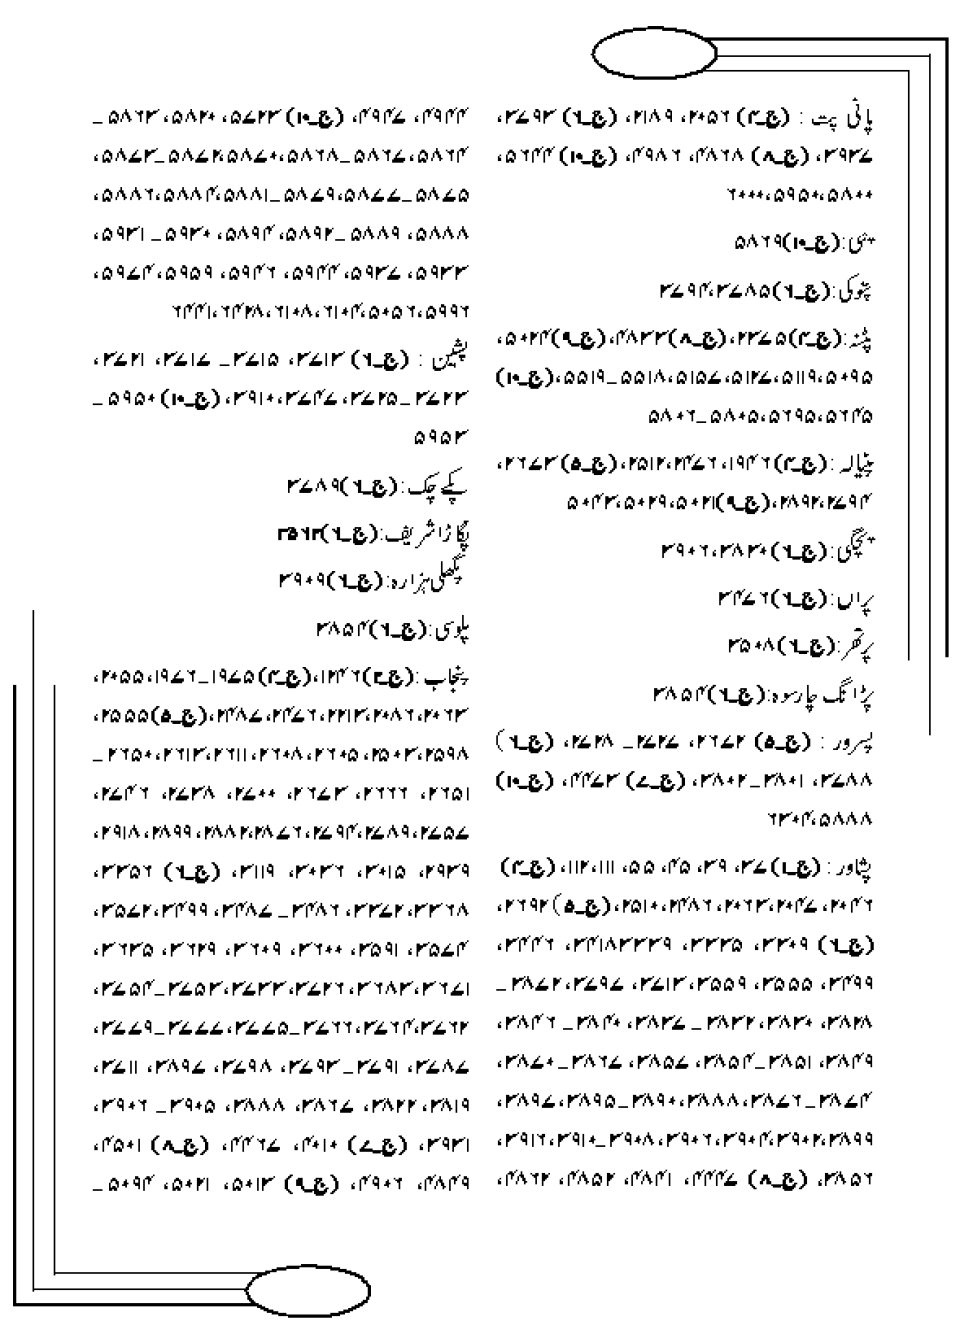 پانی پت : (ج۔۴) ۲۰۵۶، ۲۱۸۹، (ج۔۶) ۳۷۹۳،
۳۹۳۷، (ج۔۸) ۴۸۶۸، ۴۹۸۶، (ج۔۱۰) ۵۶۴۴،
۵۸۰۰،۵۹۵۰،۶۰۰۰
پتنی:(ج۔۱۰)۵۸۶۹
پتوکی:(ج۔۶)۳۷۸۵،۳۷۹۴
پٹنہ:(ج۔۴)۲۳۷۵،(ج۔۸)۴۸۳۳،(ج۔۹)۵۰۲۴،
۵۰۹۵،۵۱۱۹،۵۱۲۷،۵۱۵۷،۵۵۱۸۔۵۵۱۹،(ج۔۱۰)
۵۶۴۵،۵۶۹۵،۵۸۰۵۔۵۸۰۶
پٹیالہ:(ج۔۴)۱۹۴۶،۲۴۷۶،۲۵۱۲،(ج۔۵)۲۶۷۳،
۲۷۹۴،۲۸۹۲،(ج۔۹)۵۰۲۱،۵۰۲۹،۵۰۴۳
(ج۔۶)۳۸۳۰،۳۹۰۶
پراں:(ج۔۶)۳۴۷۶
پرتھر:(ج۔۶)۳۵۰۸
پڑانگ چارسوہ:(ج۔۶)۳۸۵۴
پسرور : (ج۔۵) ۲۶۷۲، ۲۷۲۷۔ ۲۷۲۸، (ج۔۶)
۳۷۸۸، ۳۸۰۱۔۳۸۰۲، (ج۔۷) ۴۴۷۳، (ج۔۱۰)
۵۸۸۸،۶۳۰۴
پشاور : (ج۔۱)۳۷، ۳۹، ۴۵، ۵۵، ۱۱۱، ۱۱۲، (ج۔۴)
۲۰۴۶، ۲۰۴۷،۲۰۶۳، ۲۴۸۶، ۲۵۱۰،(ج۔۵)۲۶۹۲،
(ج۔۶) ۳۳۰۹، ۳۳۳۵، ۳۳۳۹،۳۴۱۸، ۳۴۴۶،
۳۴۹۹، ۳۵۵۵، ۳۵۵۹، ۳۷۱۳، ۳۷۹۷، ۳۸۲۷۔
۳۸۲۸، ۳۸۳۰، ۳۸۳۲۔۳۸۳۷، ۳۸۴۰۔ ۳۸۴۶،
۳۸۴۹، ۳۸۵۱۔۳۸۵۴، ۳۸۵۷، ۳۸۶۷۔۳۸۷۰،
۳۸۷۴۔۳۸۷۶،۳۸۸۸،۳۸۹۰۔۳۸۹۵،۳۸۹۷،
۳۸۹۹،۳۹۰۲،۳۹۰۴،۳۹۰۶،۳۹۰۸۔۳۹۱۰،۳۹۱۶،
۳۸۵۶، (ج۔۸) ۴۴۴۷، ۴۸۴۱، ۴۸۵۲، ۴۸۶۲،
۴۹۴۴، ۴۹۴۷، (ج۔۱۰) ۵۷۲۳، ۵۸۲۰، ۵۸۶۳۔
۵۸۶۴،۵۸۶۷۔۵۸۶۸،۵۸۷۰،۵۸۷۲۔۵۸۷۳،
۵۸۷۵۔۵۸۷۷،۵۸۷۹۔۵۸۸۱،۵۸۸۴،۵۸۸۶،
۵۸۸۸، ۵۸۸۹۔ ۵۸۹۲، ۵۸۹۴، ۵۹۳۰۔ ۵۹۳۱،
۵۹۳۳، ۵۹۳۷، ۵۹۴۴، ۵۹۴۶، ۵۹۵۹، ۵۹۷۴،
۵۹۹۶،۶۰۵۶،۶۱۰۴،۶۱۰۸،۶۴۲۸،۶۴۴۱
پشین : (ج۔۶) ۳۷۱۳، ۳۷۱۵۔ ۳۷۱۷، ۳۷۲۱،
۳۷۲۳۔۳۷۲۵، ۳۷۴۷، ۳۹۱۰، (ج۔۱۰) ۵۹۵۰۔
۵۹۵۳
پکے چک:(ج۔۶)۳۷۸۹
پگاڑا شریف:(ج۔۶)۳۵۶۳
پکھلی ہزارہ:(ج۔۶)۳۹۰۹
پلوسی:(ج۔۶)۳۸۵۴
پنجاب:(ج۔۳)۱۲۴۶،(ج۔۴)۱۹۷۵۔۱۹۷۶،۲۰۵۵،
۲۰۶۳،۲۰۸۶،۲۲۱۳،۲۴۷۶،۲۴۸۷،(ج۔۵)۲۵۵۵،
۲۵۹۸،۲۵۰۳،۲۶۰۵،۲۶۰۸،۲۶۱۱،۲۶۱۳،۲۶۵۰۔
۲۶۵۱، ۲۶۶۶، ۲۶۷۳، ۲۷۰۰، ۲۷۳۸، ۲۷۴۶،
۲۷۵۷،۲۷۸۹،۲۷۹۴،۲۸۷۶،۲۸۸۲،۲۸۹۹،۲۹۱۸،
۲۹۳۹، ۳۰۱۵، ۳۰۳۶، ۳۱۱۹، (ج۔۶) ۳۳۵۶،
۳۳۶۸، ۳۳۷۲، ۳۴۸۶۔ ۳۴۸۷، ۳۴۹۹، ۳۵۷۲،
۳۵۷۴، ۳۵۹۱، ۳۶۰۰، ۳۶۰۹، ۳۶۲۹، ۳۶۳۵،
۳۶۷۱،۳۶۸۳،۳۷۲۶،۳۷۳۳،۳۷۵۳۔۳۷۵۴،
۳۷۶۲،۳۷۶۴،۳۷۶۶۔۳۷۷۵،۳۷۷۷۔۳۷۷۹،
۳۷۸۷، ۳۷۹۱۔۳۷۹۳، ۳۷۹۸، ۳۸۹۷، ۳۷۱۱،
۳۸۱۹، ۳۸۲۲، ۳۸۶۷، ۳۸۸۸، ۳۹۰۵۔ ۳۹۰۶،
۳۹۳۱، (ج۔۷) ۴۰۱۰، ۴۴۶۷، (ج۔۸) ۴۵۰۱،
۴۸۴۹، ۴۹۰۶، (ج۔۹) ۵۰۱۳، ۵۰۲۱، ۵۰۹۴۔